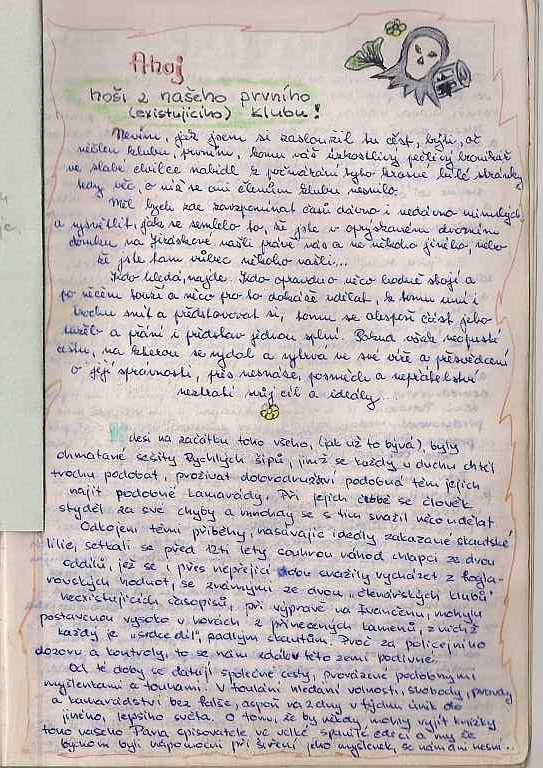 Ahoj
hoši z našeho prvního
(existujícího) klubu!
Nevím, jak jsem si zasloužil tu čest, býti, ač
nečlen klubu, prvním, komu váš úzkostlivý pečlivý kronikář
ve slabé chvilce nabídl k počmárání tyto krásné bílé stránky
tedy věc, o níž se ani členům klubu nesnilo.
Měl bych zde zavzpomínat časů dávno i nedávno minulých,
a vysvětlit, jak se semlelo to, že jste v oprýskaném dvorním
domku na Jiráskově našli právě nás a ne někoho jiného, nebo
že jste tam vůbec někoho našli...
Kdo hledá, najde. Kdo opravdu něco hodně stojí a
po něčem touží a něco pro to dokáže udělat, k tomu umí i
trochu snít a představovat si, tomu se alespoň část jeho
tužeb a přání i představ jednou splní. Pokud však neopustí
cestu, na kterou se vydal a vytrvá ve své víře a přesvědčení
o její správnosti, přes nesnáze, posměch a nepřátelství
neztratí svůj cíl a ideály...
Kdesi na začátku toho všeho, (jak už to bývá), byly
ohmatané sešity Rychlých šípů, jimž se každý v duchu chtěl
trochu podobat, prožívat dobrodružství podobná těm jejich
najít podobné kamarády. Při jejich četbě se člověk
styděl za své chyby a mnohdy se s tím snažil něco udělat
Odkojeni těmi příběhy, nasávajíc ideály zakázané skautské
lilie, setkali se před 12ti lety souhrou náhod chlapci ze dvou
oddílů, jež se i přes nepřející dobu snažily vycházet z foglarovských
hodnot, se známými ze dvou „čtenářských klubů"
neexistujících časopisů, při výpravě na Ivančenu, mohylu
postavenou vysoko v horách z přinesených kamenů, z nichž
každý je „srdce díl" padlým skautům. Proč za policejního
dozoru a kontroly, to se nám zdálo v této zemi podivné.
Od té doby se datují společné cesty, provázené podobnými
myšlenkami a touhami. V toulání hledání volnosti, svobody, pravdy
a kamarádství bez faleše, aspoň na 2 dny v týdnu únik do
jiného, lepšího světa. O tom, že by někdy mohly vyjít knížky
toho vašeho Pána spisovatele ve velké edici a my že
bychom byli nápomocni při šíření jeho myšlenek, se nám ani nesní...